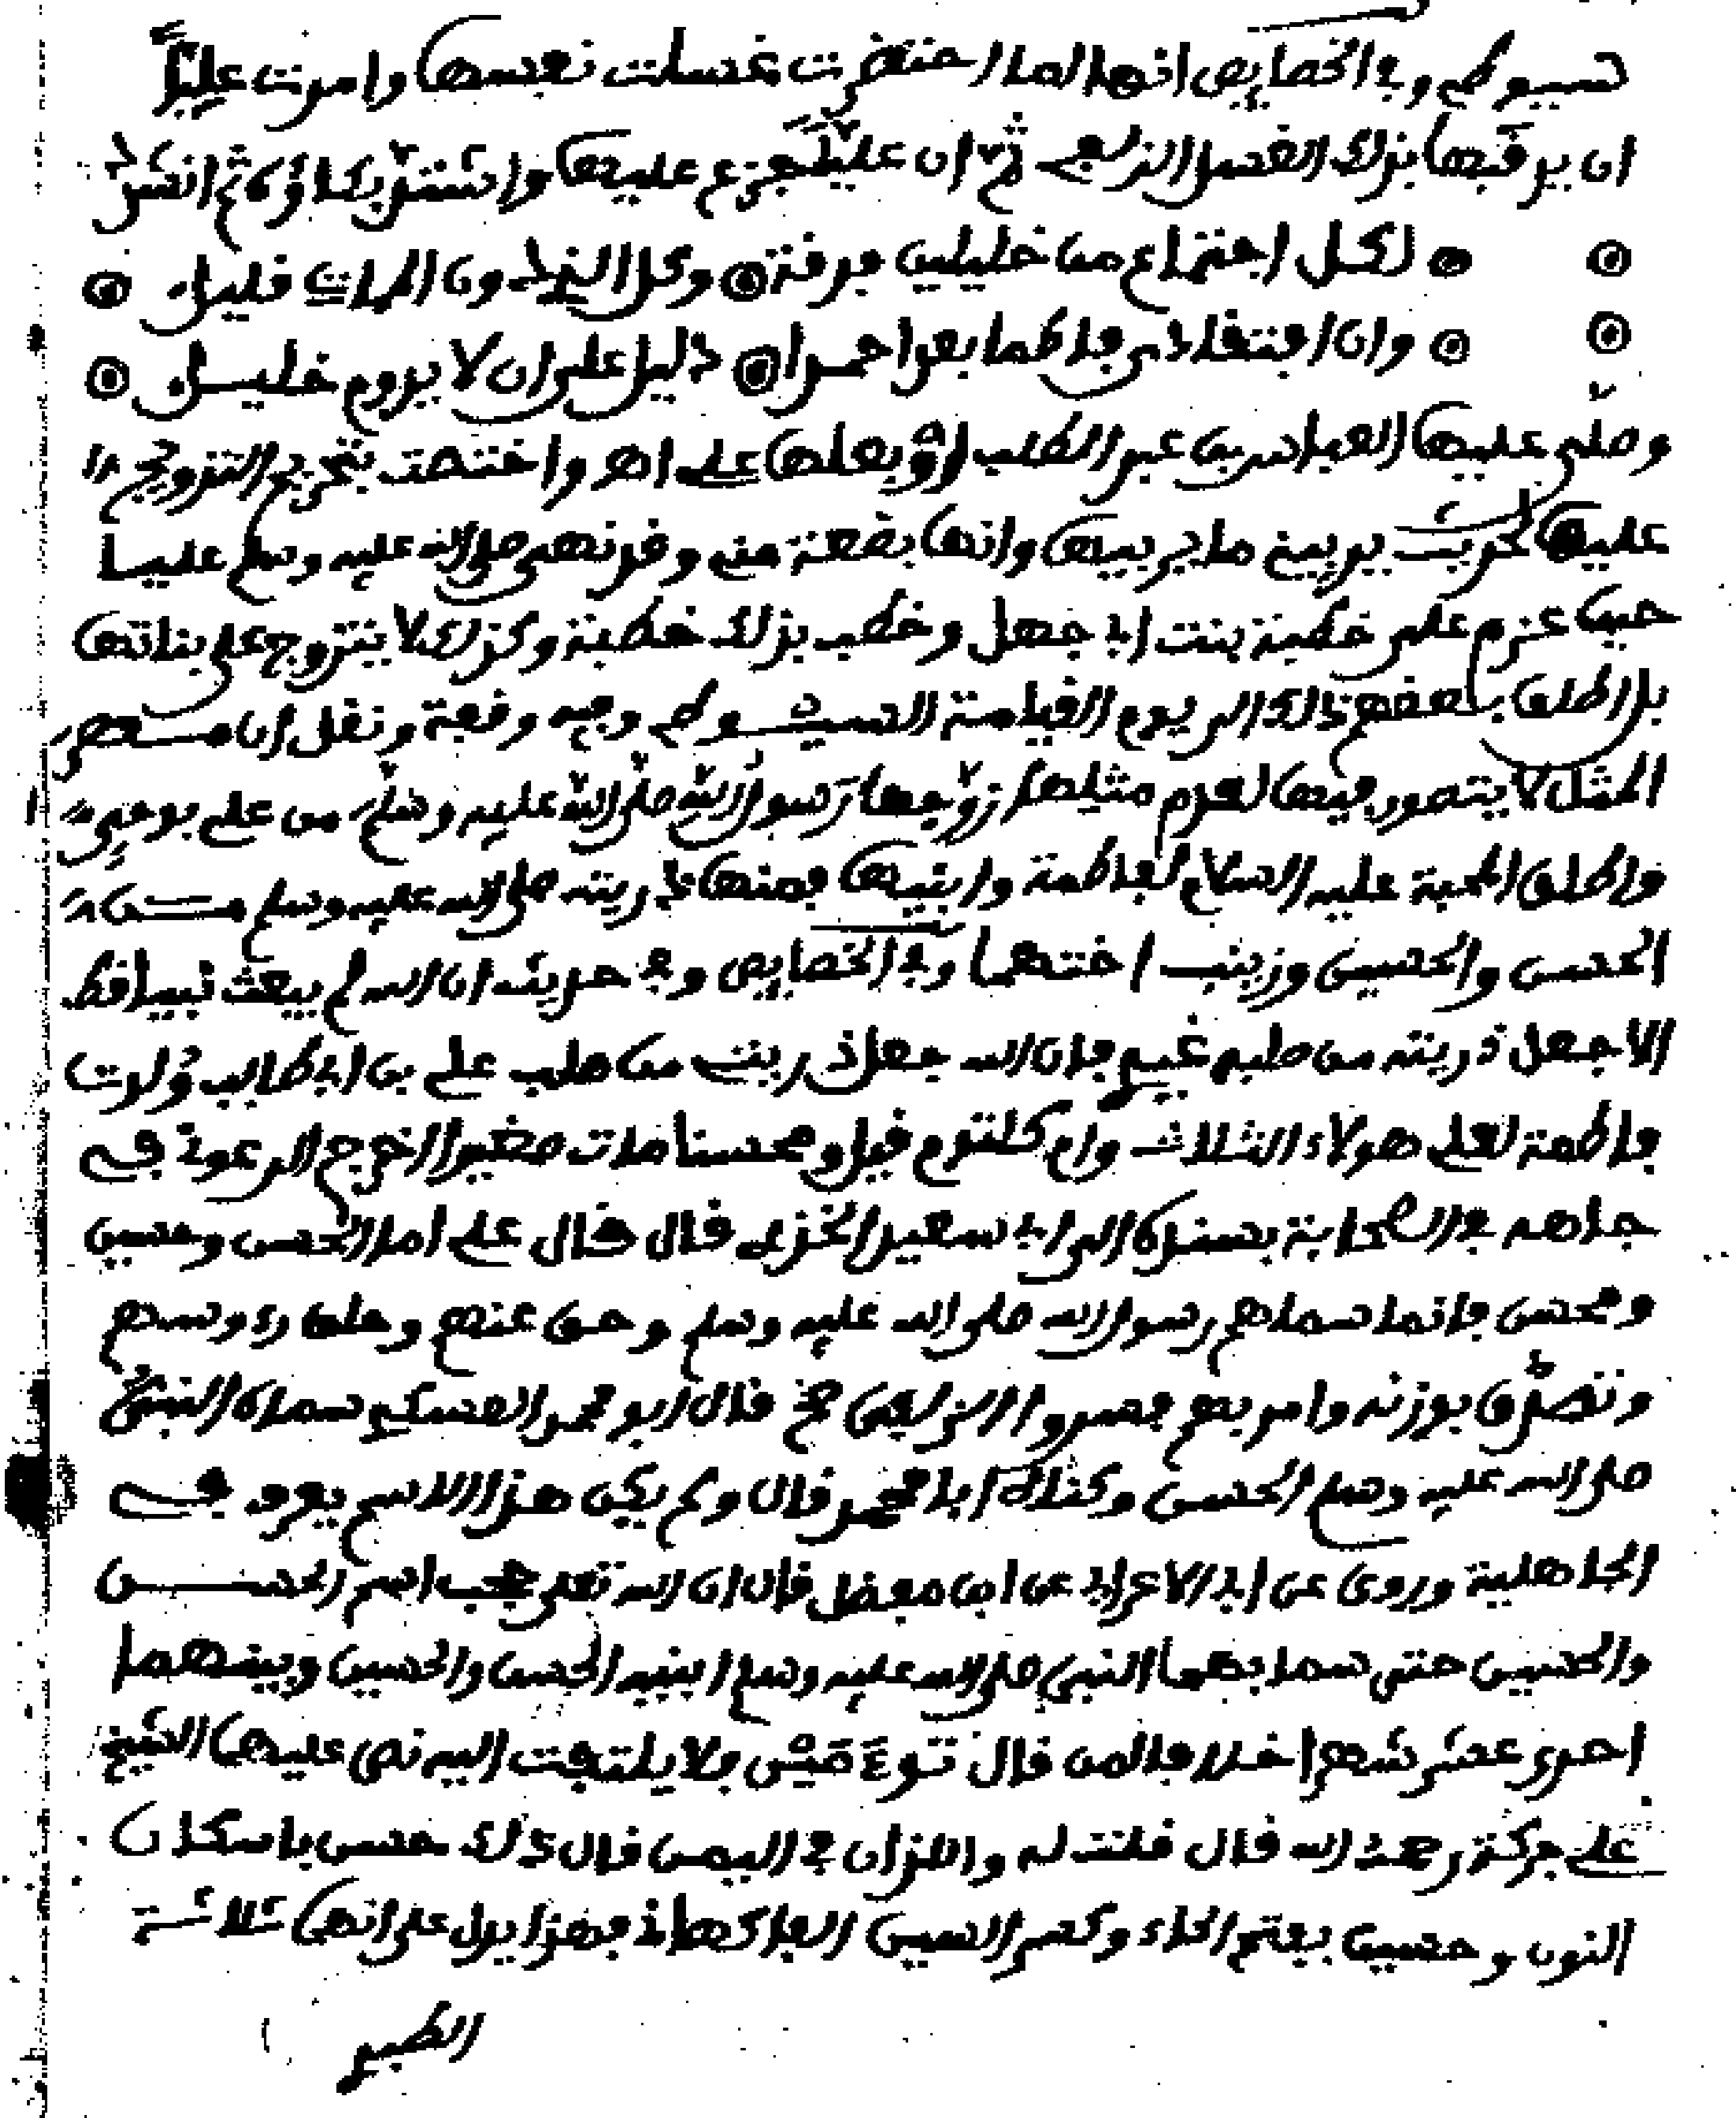 سيوطي وفي الخصايص انها لما احتضرت غسلت نفسها وامرت عليا
ان يدفنها بذلك الغسل الزيلعي ثم ان عليا جزع عليها واشتد بكاؤه ثم انشد
لكل اجتماع من خليلين فرقة وكل الذي دون الممات قليل
وان افتقادي فاطما بعد احمد دليل على ان لا يدوم خليل
وصلى عليها العباس بن عبد المطلب او بعلها علي اهـ واختصت بتحريم التزويج
عليها لحديث يريبني ما يريبها وانها بضعة مني وقد نهى صلى الله عليه وسلم عليا
حين عزم على خطبة بنت ابي جهل وخطب بذلك خطبة وكذلك لا يتزوج على بناتها
بل اطلق بعضهم ذلك الى يوم القيامة السيوطي وفيه وقفة ونقل ان مسمى
المثل لا يتصور فيها لعدم مثلها زوجها رسول الله صلى الله عليه وسلم من علي بوحي
واطلق المحبة عليه السلام لفاطمة وابنيها فمنها ذريته صلى الله عليه وسلم من
الحسن والحسين وزينب اختهما وفي الخصايص وفي حديث ان الله لم يبعث نبيا قط
الا جعل ذريته من صلبه غيري فان الله جعل ذريتي من صلب علي بن ابي طالب ولدت
فاطمة لعلي هولاء الثلاث وام كلثوم قيل ومحسنا مات صغيرا اخرج الرعوذ في
جاهه في الصحابة بسنده الى ابي سعيد الخدري قال قال علي اما الحسن وحسين
ومحسن فانما سماهم رسول الله صلى الله عليه وسلم وعق عنهم وحلق رءوسهم
وتصدق بوزنه وامر بهم فسروا الزيلعي مخ قال ابو محمد العسكري سماه النبي
صلى الله عليه وسلم الحسن وكناه ابا محمد قال ولم يكن هذا الاسم يعرف في
الجاهلية وروي عن ابي الاعرابي عن ابن مفضل قال ان الله تعلى حجب اسم الحسن
والحسين حتى سما بهما النبي صلى الله عليه وسلم ابنيه الحسن والحسين وبينهما
احدى عشر شهرا خلافا لمن قال فلا يلتفت اليه نص عليهما الشيخ
علي بركة رحمه الله قال قلت له واللذان في اليمن قال ذلك حسن باسكان
النون وحسين بفتح الحاء وكسر السين الفاكهاني فهذا يدل على انهن ثلاثة
الطبي